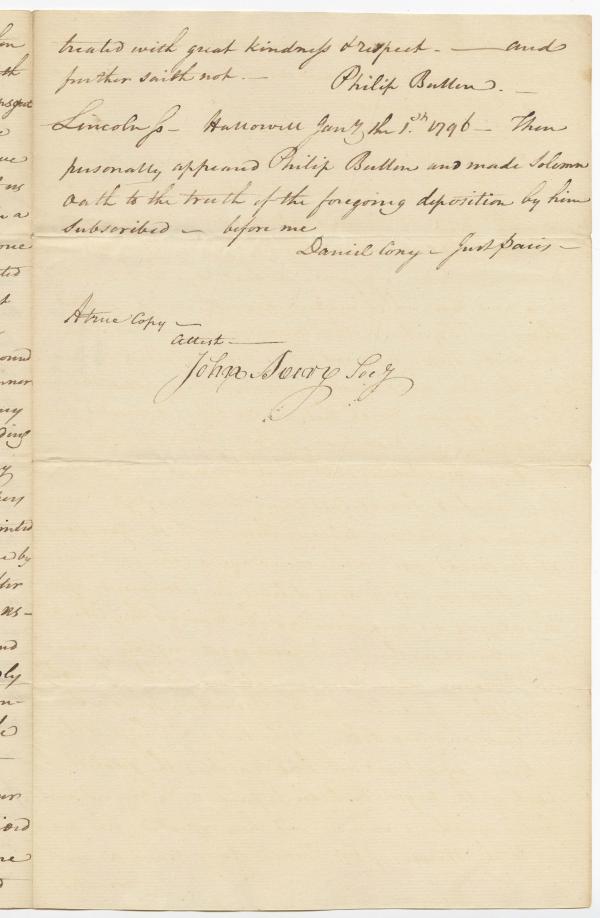 treated with great kindness & respect. — and
further saith not. — Philip Bullen. —
Lincoln Ss — Hallowell Jany the 1.st 1796 — Then
personally appeared Philip Bullen and made Solemn
Oath to the truth of the foregoing deposition by him
Subscribed — before me
Daniel Cony — Just pacis —
A true Copy —
Attest —
John Avery Secy